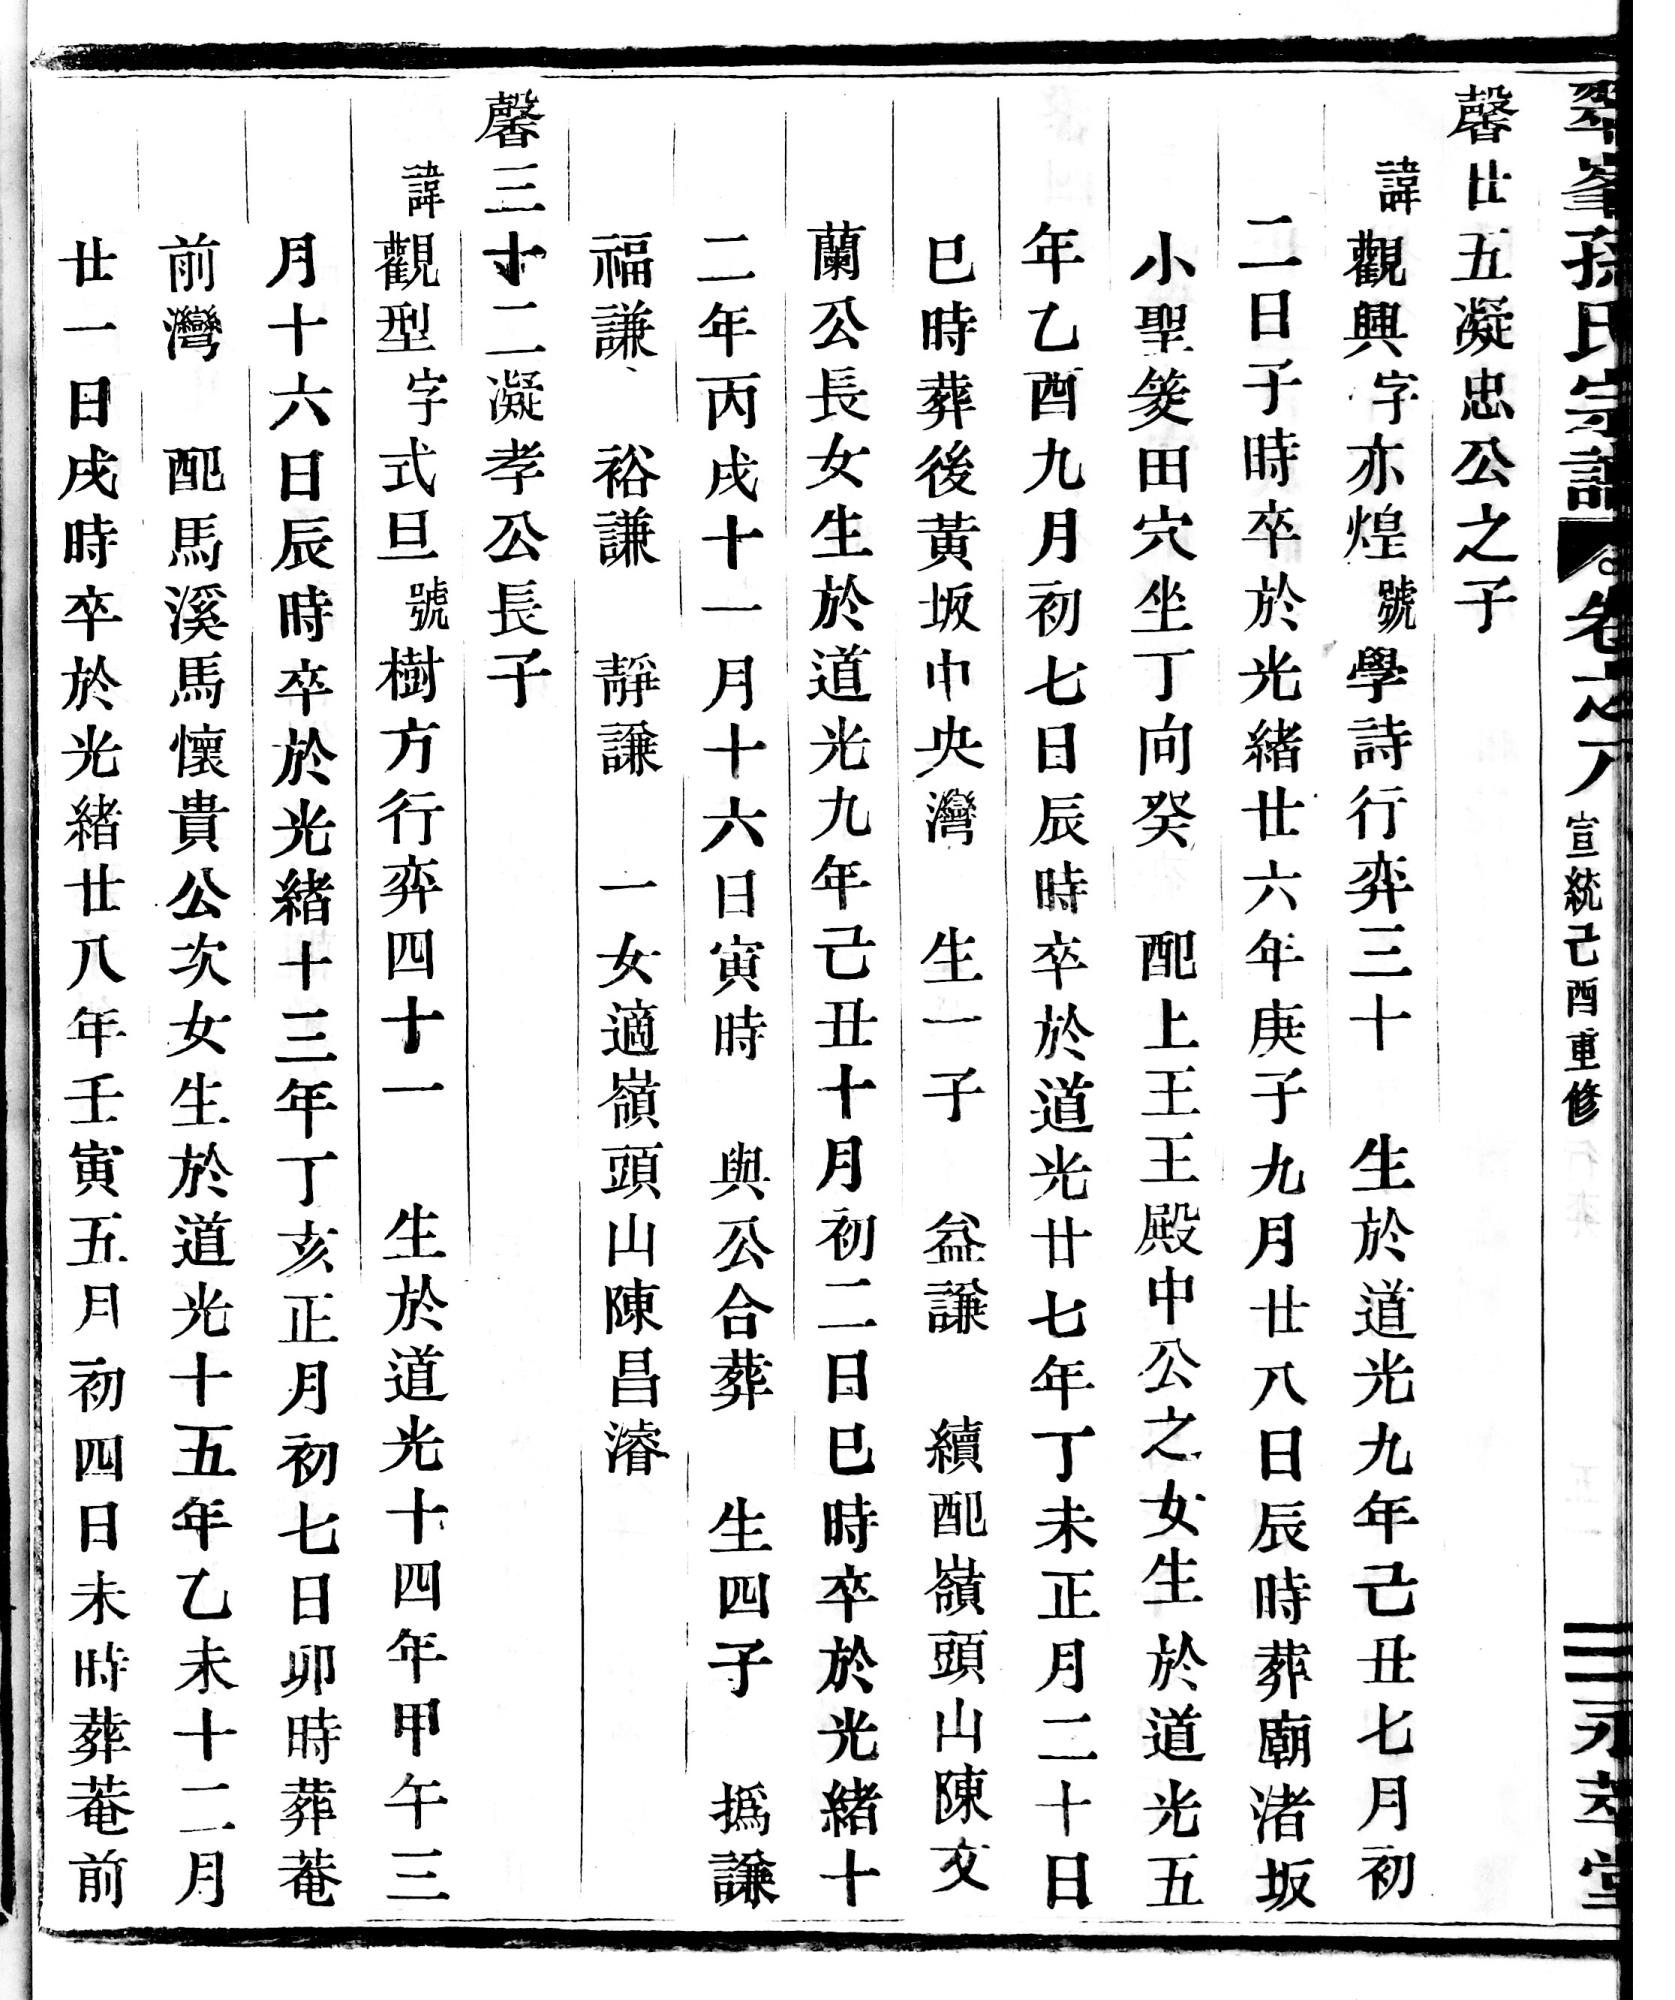 翠峯孫氏宗譜 卷之八 宣統己酉重修 二 永萃堂
馨廿五凝忠公之子
諱觀興字亦煌號學詩行弈三十 生於道光九年己丑七月初
二日子時卒於光緒廿六年庚子九月廿八日辰時葬廟渚坂
小聖筊田穴坐丁向癸 配上王王殿中公之女生於道光五
年乙酉九月初七日辰時卒於道光廿七年丁未正月二十日
巳時葬後黃坂中央灣 生一子 益謙 續配嶺頭山陳文
蘭公長女生於道光九年己丑十月初二日巳時卒於光緒十
二年丙戌十一月十六日寅時 與公合葬 生四子 撝謙
福謙 裕謙 靜謙 一女適嶺頭山陳昌濬
馨三十二凝孝公長子
諱觀型字式旦號樹方行弈四十一 生於道光十四年甲午三
月十六日辰時卒於光緒十三年丁亥正月初七日卯時葬菴
前灣 配馬溪馬懷貴公次女生於道光十五年乙未十二月
廿一日戌時卒於光緒廿八年壬寅五月初四日未時葬菴前